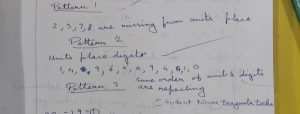 Pattern 1
2, 3, 7, 8 are missing from units place
Pattern 2
Units place digits
1, 4, 9, 6, 5, 6, 9, 4, 1, 0
Pattern 3 same order of units digits
are repeating
Student Name